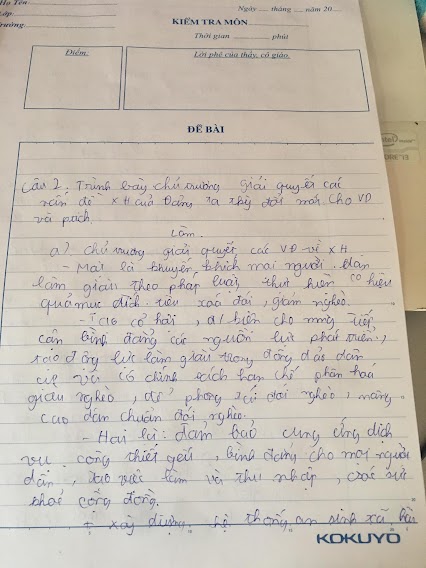 Họ Tên
Lớp
Trường
Ngày .... tháng .... năm 20....
KIỂM TRA MÔN
Thời gian ............ phút
Điểm:
Lời phê của thầy, cô giáo.
intel
CORE i3
ĐỀ BÀI
Câu 2: Trình bày chủ trương giải quyết các
vấn đề XH của Đảng ta thời đổi mới. Cho VD
và ptích.
Làm.
a) Chủ trương giải quyết các VĐ về XH
- Một là khuyến khích mọi người dân
làm giàu theo pháp luật, thực hiện có hiệu
quả mục đích tiêu xoá đói, giảm nghèo.
- Tạo cơ hội, đ/ kiện cho mng tiếp
cận bình đẳng các nguồn lực phát triển,
tạo động lực làm giàu trong đông đảo dân
cư và có chính sách hạn chế phân hoá
giàu nghèo, đề phòng tái đói nghèo, nâng
cao dần chuẩn đói nghèo.
- Hai là: đảm bảo cung ứng dịch
vụ công thiết yếu, bình đẳng cho mọi người
dân, tạo việc làm và thu nhập, csóc sức
khoẻ cộng đồng.
+ xây dựng hệ thống an sinh xã hội
KOKUYO